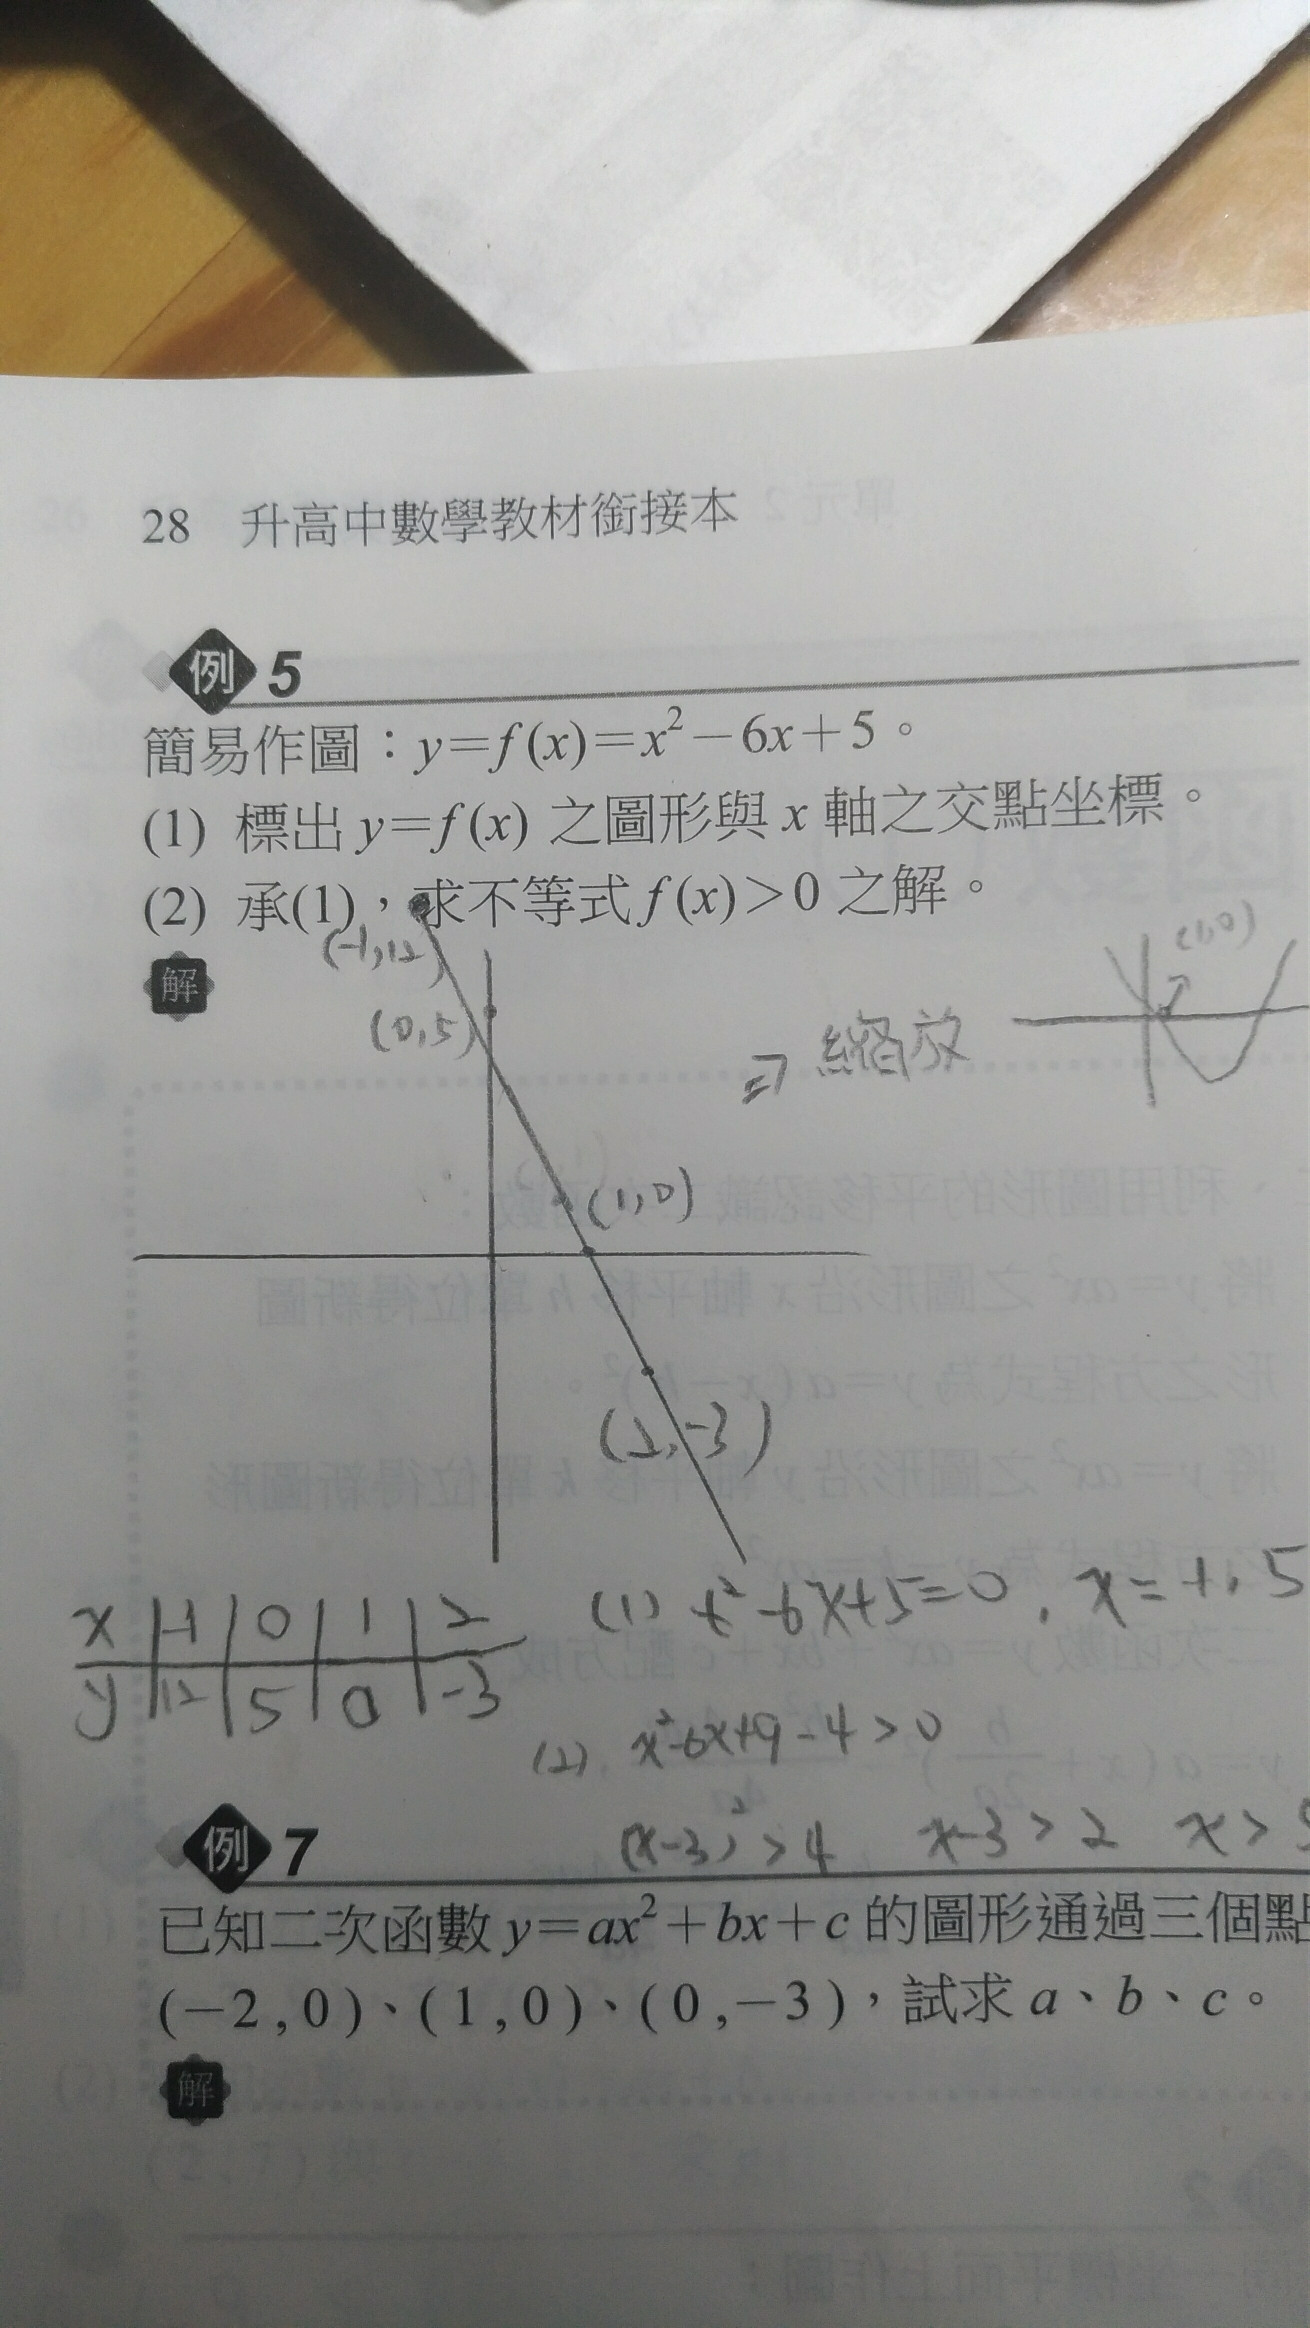 28 升高中數學教材銜接本
例 5
簡易作圖：y=f(x)=x²−6x+5。
(1) 標出 y=f(x) 之圖形與 x 軸之交點坐標。
(2) 承(1)，求不等式 f(x)>0 之解。
解
(-1,12)
(0,5)
⇒ 縮放
(1,0)
(1,0)
(2,-3)
x | -1 | 0 | 1 | 2
y | 12 | 5 | 0 | -3
(1) x²-6x+5=0, x=1,5
(2). x²-6x+9-4>0
(x-3)²>4 x-3>2 x>5
例 7
已知二次函數 y=ax²+bx+c 的圖形通過三個點
(−2,0)、(1,0)、(0,−3)，試求 a、b、c。
解